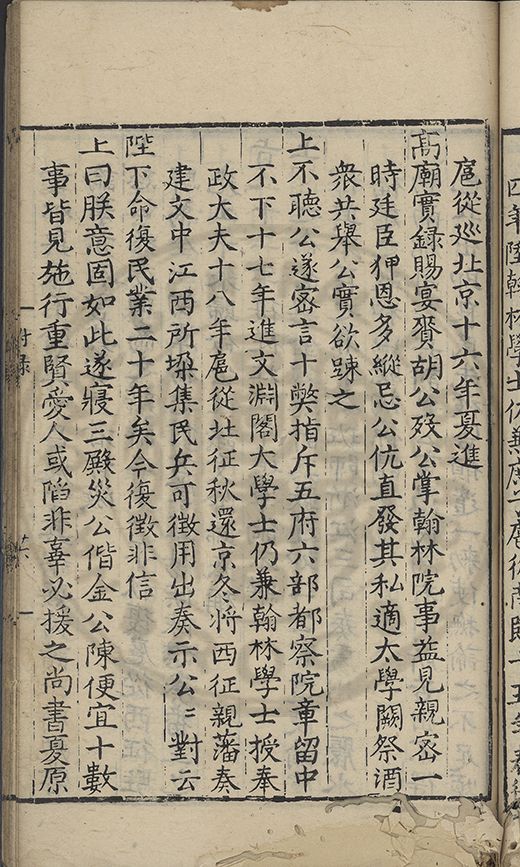 扈從廵北京十六年夏進
髙廟實録賜宴賚胡公歿公掌翰林院事益見親密一
時廷臣狎恩多縱忌公伉直發其私適太學闕祭酒
衆共舉公實欲踈之
上不聽公遂密言十獘指斥五府六部都察院章留中
不下十七年進文淵閣大學士仍兼翰林學士授奉
政大夫十八年扈從北征秋還京冬將西征親藩奏
建文中江西所垜集民兵可徴用出奏示公〻對云
陛下命復民業二十年矣今復徴非信
上曰朕意固如此遂寢三殿災公偕金公陳便宜十數
事皆見施行重賢愛人或䧟非辜必援之尚書夏原
附录